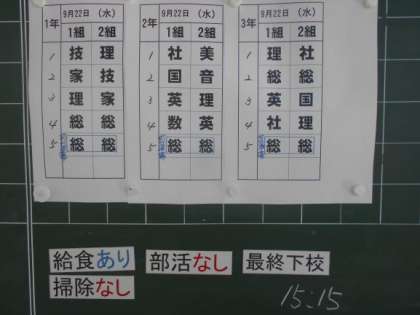 1年 9月22日 (水)
1組 2組
1 技 理
2 家 技
3 理 家
4 総 総
5 総 総
2年 9月22日 (水)
1組 2組
1 社 美
2 国 音
3 英 理
4 数 英
5 総 総
3年 9月22日 (水)
1組 2組
1 理 社
2 総 総
3 英 国
4 社 理
5 総 総
給食あり 部活なし 最終下校
掃除なし 15:15